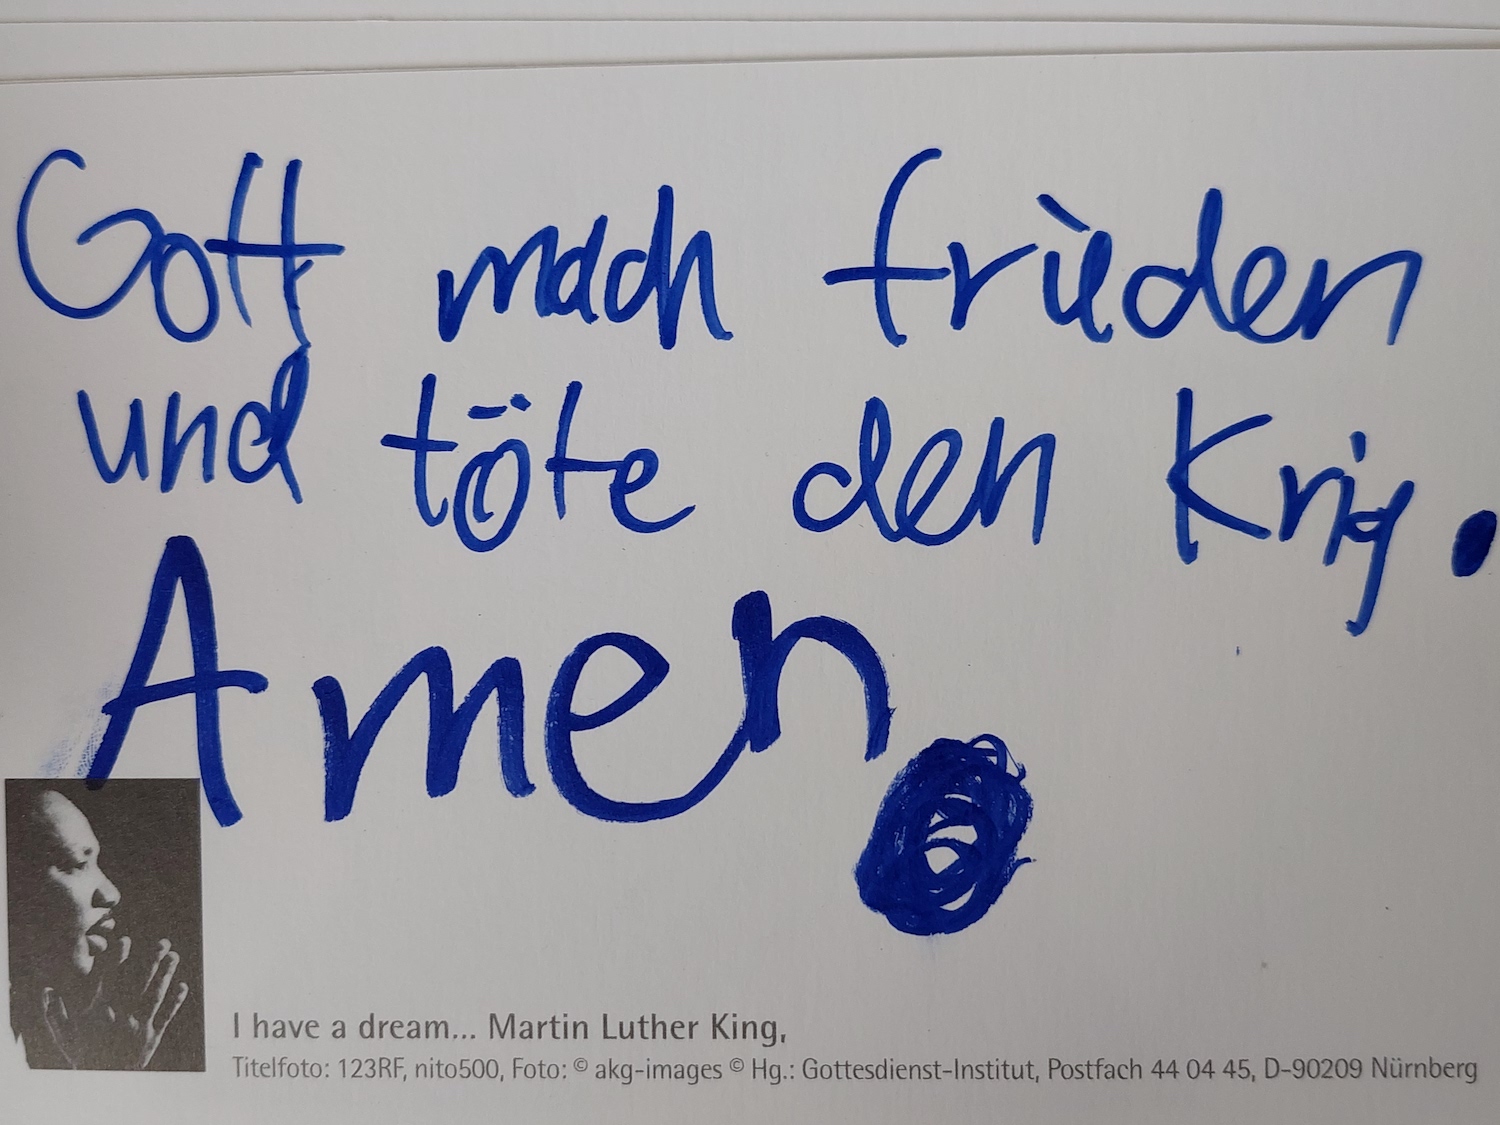 Gott mach frieden
und töte den Krig.
Amen.
I have a dream... Martin Luther King,
Titelfoto: 123RF, nito500, Foto: © akg-images © Hg.: Gottesdienst-Institut, Postfach 44 04 45, D-90209 Nürnberg